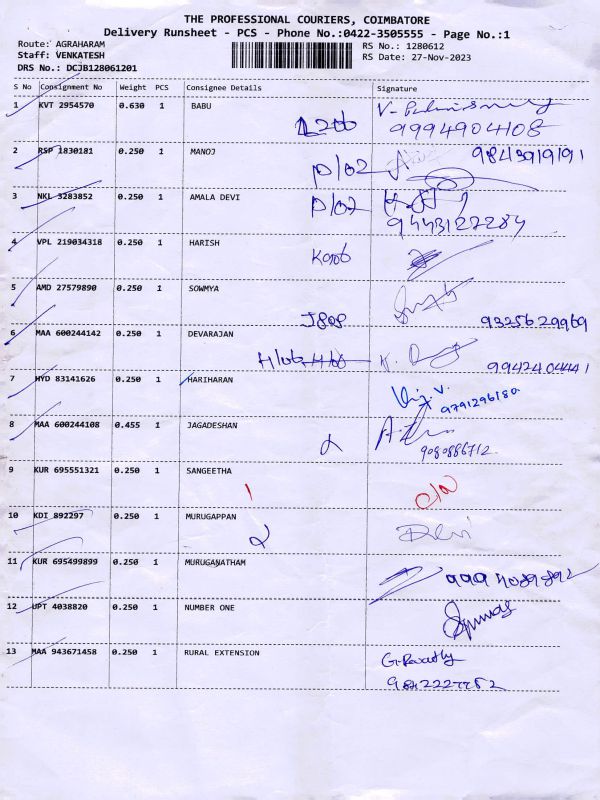 THE PROFESSIONAL COURIERS, COIMBATORE
Delivery Runsheet - PCS - Phone No.:0422-3505555 - Page No.:1
Route: AGRAHARAM
Staff: VENKATESH
DRS No.: DCJB128061201
RS No.: 1280612
RS Date: 27-Nov-2023
S No Consignment No Weight PCS Consignee Details Signature
1 KVT 2954570 0.630 1 BABU
9994904108
2 RSP 1830181 0.250 1 MANOJ
D/02 9843919191
3 NKL 3283852 0.250 1 AMALA DEVI
D/02 9443127284
4 VPL 219034318 0.250 1 HARISH
5 AMD 27579890 0.250 1 SOWMYA
J808 9325629969
6 MAA 600244142 0.250 1 DEVARAJAN
9942404441
7 HYD 83141626 0.250 1 HARIHARAN
9791296180
8 MAA 600244108 0.455 1 JAGADESHAN
9080886712
9 KUR 695551321 0.250 1 SANGEETHA
10 KDI 892297 0.250 1 MURUGAPPAN
Devi
11 KUR 695499899 0.250 1 MURUGANATHAM
9994089892
12 UPT 4038820 0.250 1 NUMBER ONE
13 MAA 943671458 0.250 1 RURAL EXTENSION
G. Revathy
9842227752